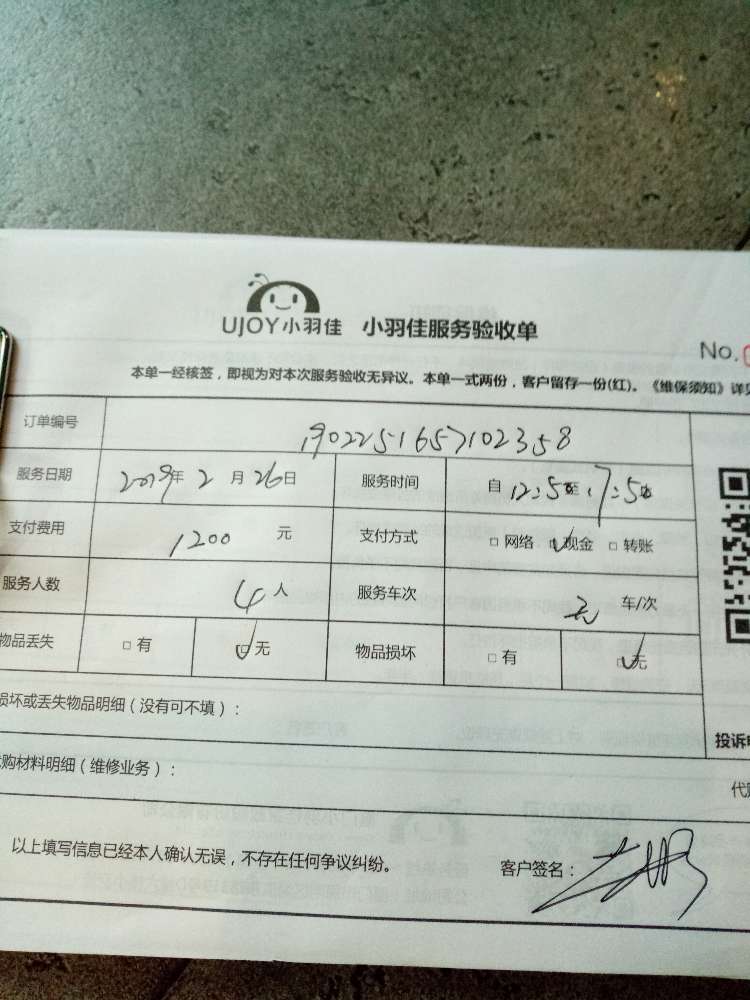 UJOY小羽佳 小羽佳服务验收单
No.
本单一经核签，即视为对本次服务验收无异议。本单一式两份，客户留存一份(红)。《维保须知》详见
订单编号 1902251657102358
服务日期 2019年 2 月 26日 服务时间 自 12:50至 17:50
支付费用 1200 元 支付方式 □ 网络 ☑ 现金 □ 转账
服务人数 4 人 服务车次 无 车/次
物品丢失 □ 有 ☑ 无 物品损坏 □ 有 ☑ 无
损坏或丢失物品明细（没有可不填）：
投诉电
代购材料明细（维修业务）：
代购
以上填写信息已经本人确认无误，不存在任何争议纠纷。 客户签名：